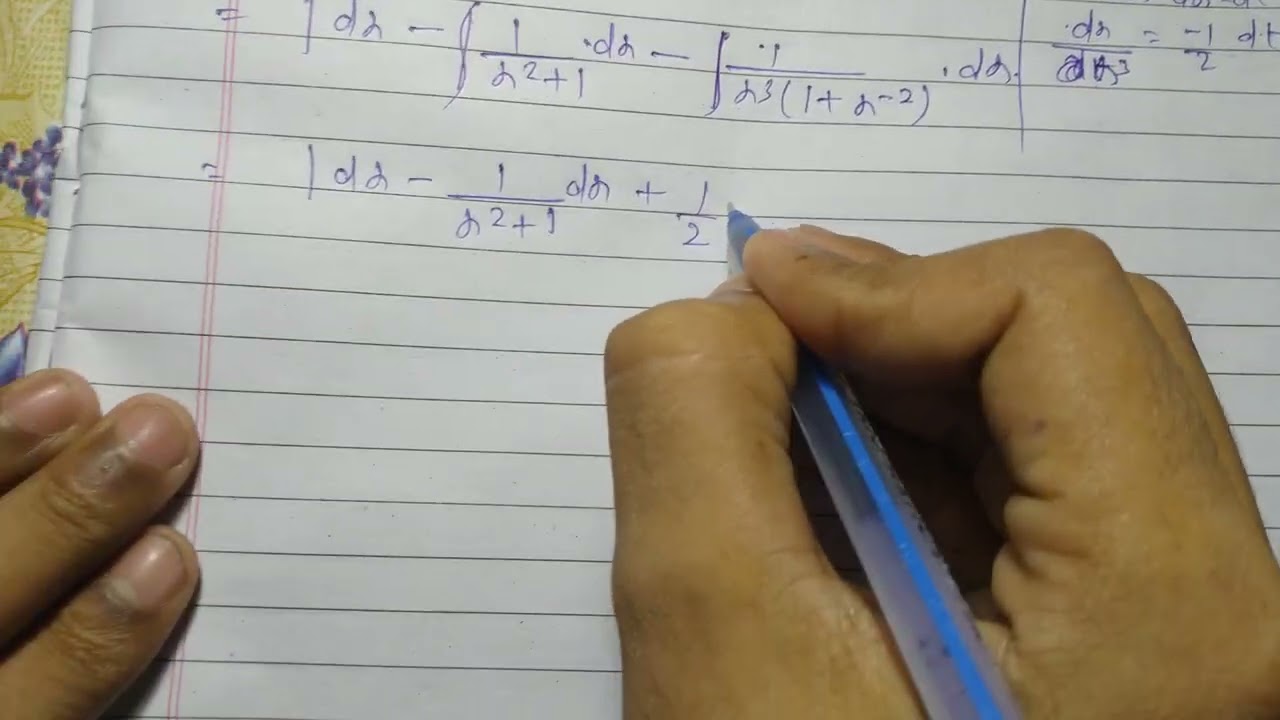 = ∫ dx - ∫ 1/(x²+1) · dx - ∫ 1/(x³(1+x⁻²)) · dx.
dx/x³ = -1/2 dt
= ∫ dx - 1/(x²+1) dx + 1/2